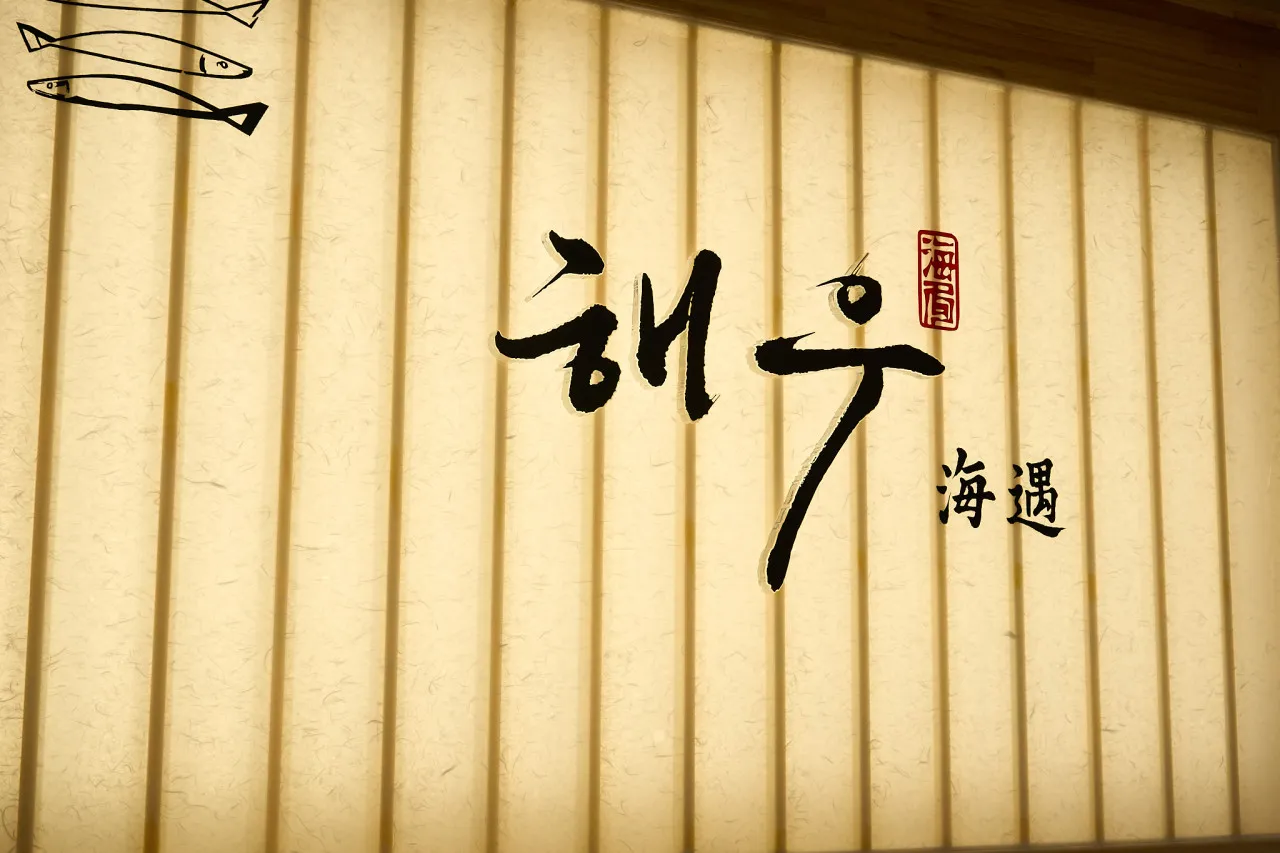 해우
海遇